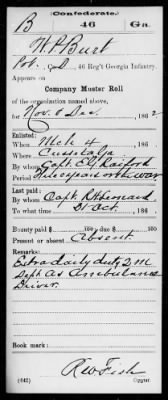 Confederate.
B 46 Ga.
W P Burt
Pvt, Co. B, 46 Reg't Georgia Infantry.
Appears on
Company Muster Roll
of the organization named above,
for Nov. & Dec., 1862
Enlisted:
When Mch 4, 186
Where Cusseta Ga
By whom Capt. E. J. Raiford
Period
Last paid:
By whom Capt. R H Leonard
To what time 31 Oct., 186
Bounty paid $ 100; due $ 100
Present or absent Absent
Remarks:
Extra daily duty Q M
Dept as Ambulance
Driver.
R W Fish
(642) Copyist.